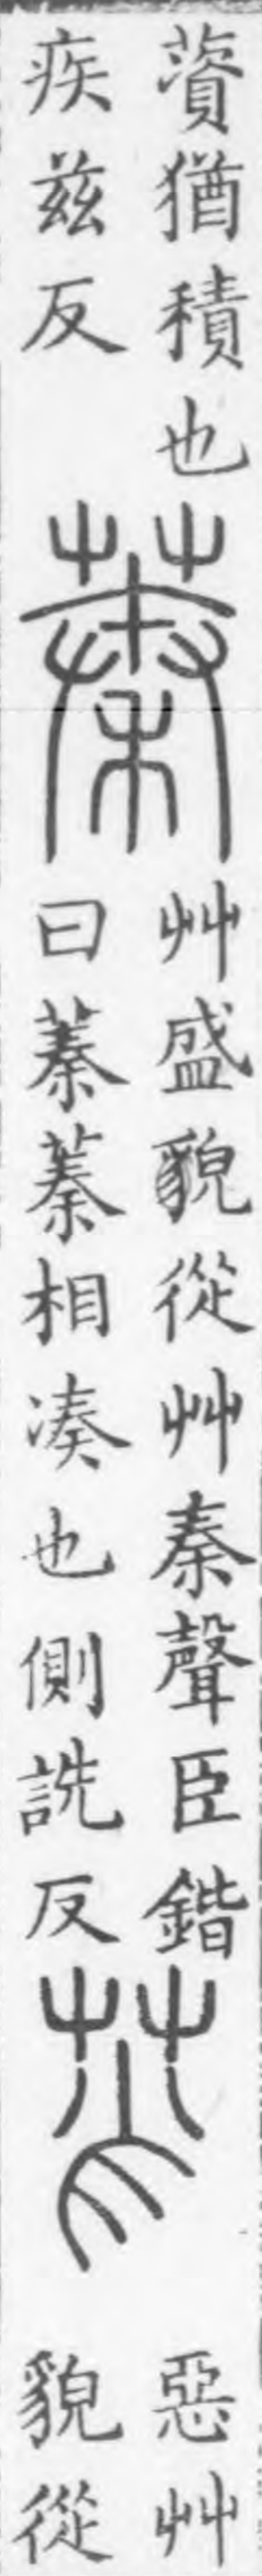 薋猶積也
疾茲反
蓁
艸盛貌從艸秦聲臣鍇
曰蓁蓁相凑也側詵反
莦
惡艸
貌從